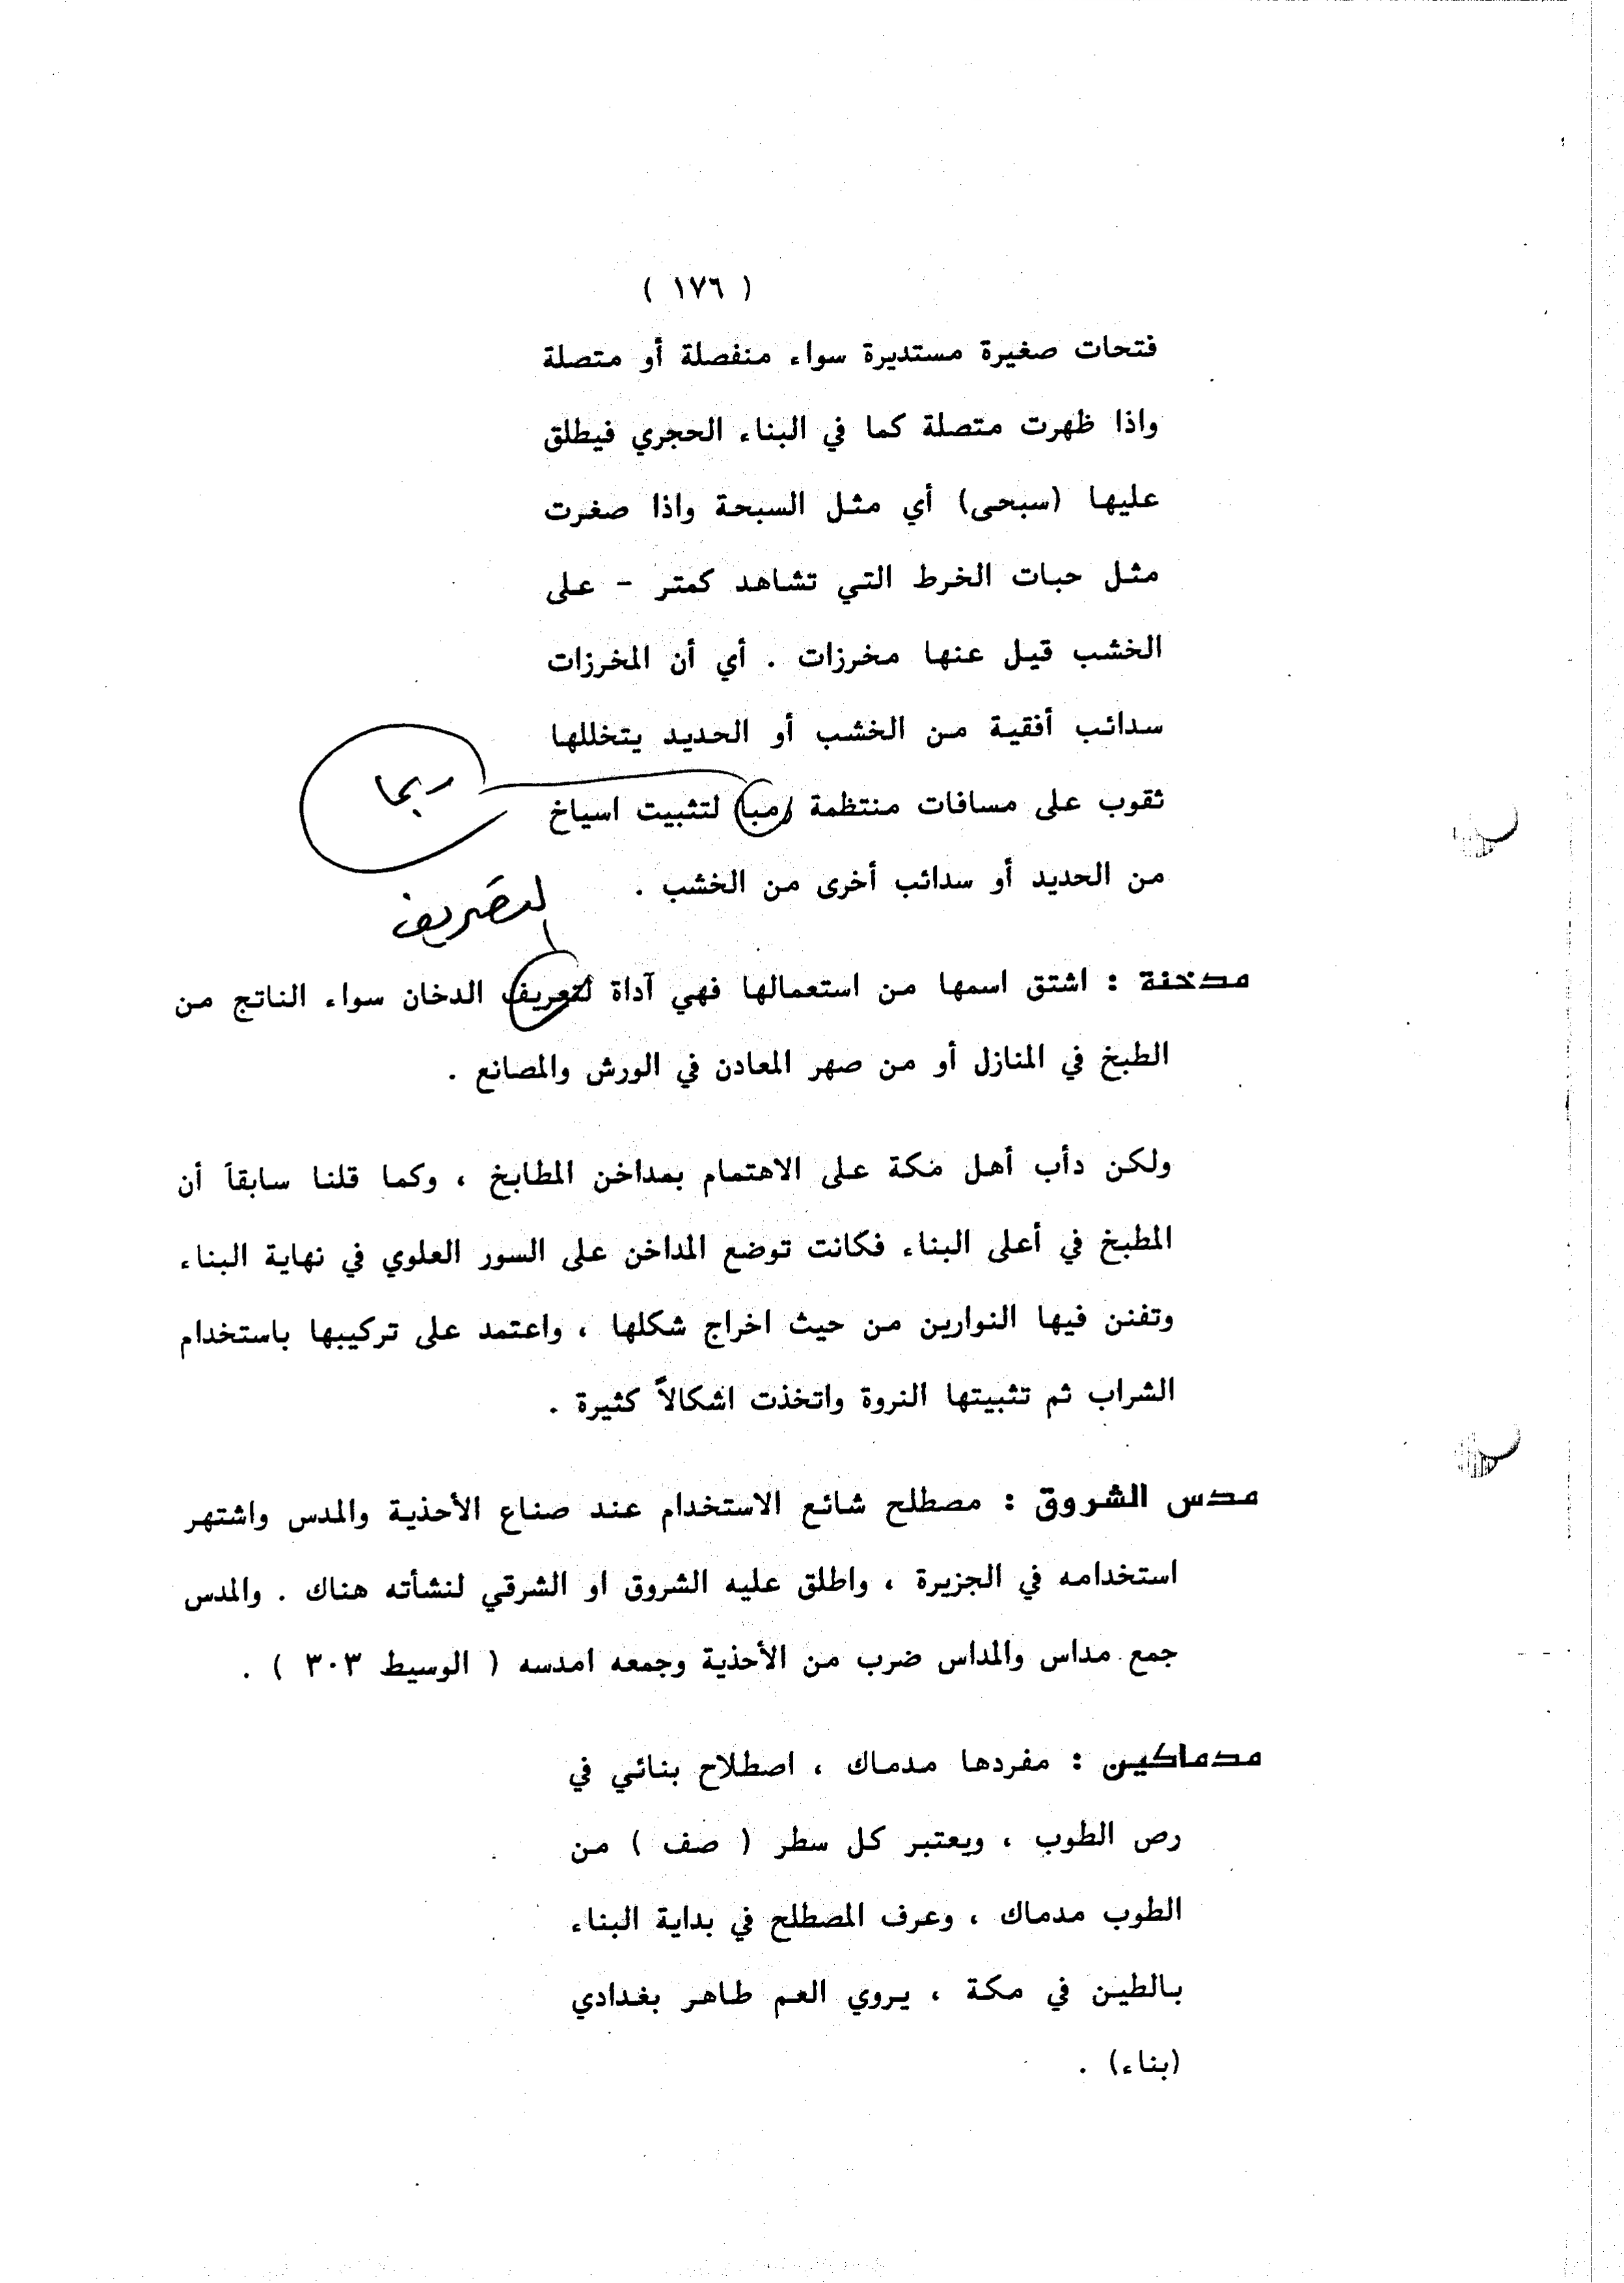 ( ١٧٦ )
فتحات صغيرة مستديرة سواء منفصلة أو متصلة
واذا ظهرت متصلة كما في البناء الحجري فيطلق
عليها (سبحى) أي مثل السبحة واذا صغرت
مثل حبات الخرط التي تشاهد كمتر - على
الخشب قيل عنها مخرزات . أي أن المخرزات
سدائب أفقية من الخشب أو الحديد يتخللها
ثقوب على مسافات منتظمة رمبا لتثبيت اسياخ
ربما
من الحديد أو سدائب أخرى من الخشب .
لتصريف
مدخنة : اشتق اسمها من استعمالها فهي آداة لتعريف الدخان سواء الناتج من
الطبخ في المنازل أو من صهر المعادن في الورش والمصانع .
ولكن دأب أهل مكة على الاهتمام بمداخن المطابخ ، وكما قلنا سابقاً أن
المطبخ في أعلى البناء فكانت توضع المداخن على السور العلوي في نهاية البناء
وتفنن فيها النوارين من حيث اخراج شكلها ، واعتمد على تركيبها باستخدام
الشراب ثم تثبيتها النروة واتخذت اشكالاً كثيرة .
مدس الشروق : مصطلح شائع الاستخدام عند صناع الأحذية والمدس واشتهر
استخدامه في الجزيرة ، واطلق عليه الشروق او الشرقي لنشأته هناك . والمدس
جمع مداس والمداس ضرب من الأحذية وجمعه امدسه ( الوسيط ٣٠٣ ) .
مدماكين : مفردها مدماك ، اصطلاح بنائي في
رص الطوب ، ويعتبر كل سطر ( صف ) من
الطوب مدماك ، وعرف المصطلح في بداية البناء
بالطين في مكة ، يروي العم طاهر بغدادي
(بناء) .